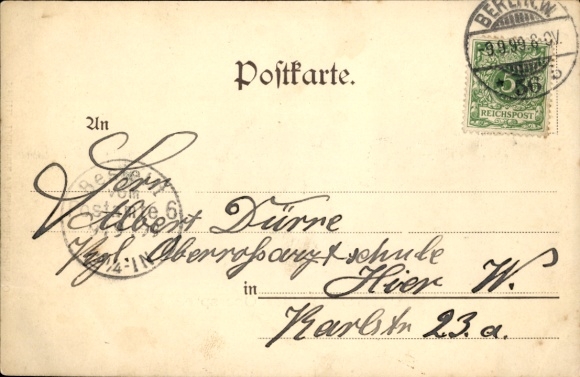 BERLIN.W.
9.9.99.8-9V.
56
5
REICHSPOST
Postkarte.
An
Herrn
Albert Dürre
Kgl. Oberrossarztschule
in Hier W.
Karlstr 23.a.
Bestellt
vom
Postamte 6